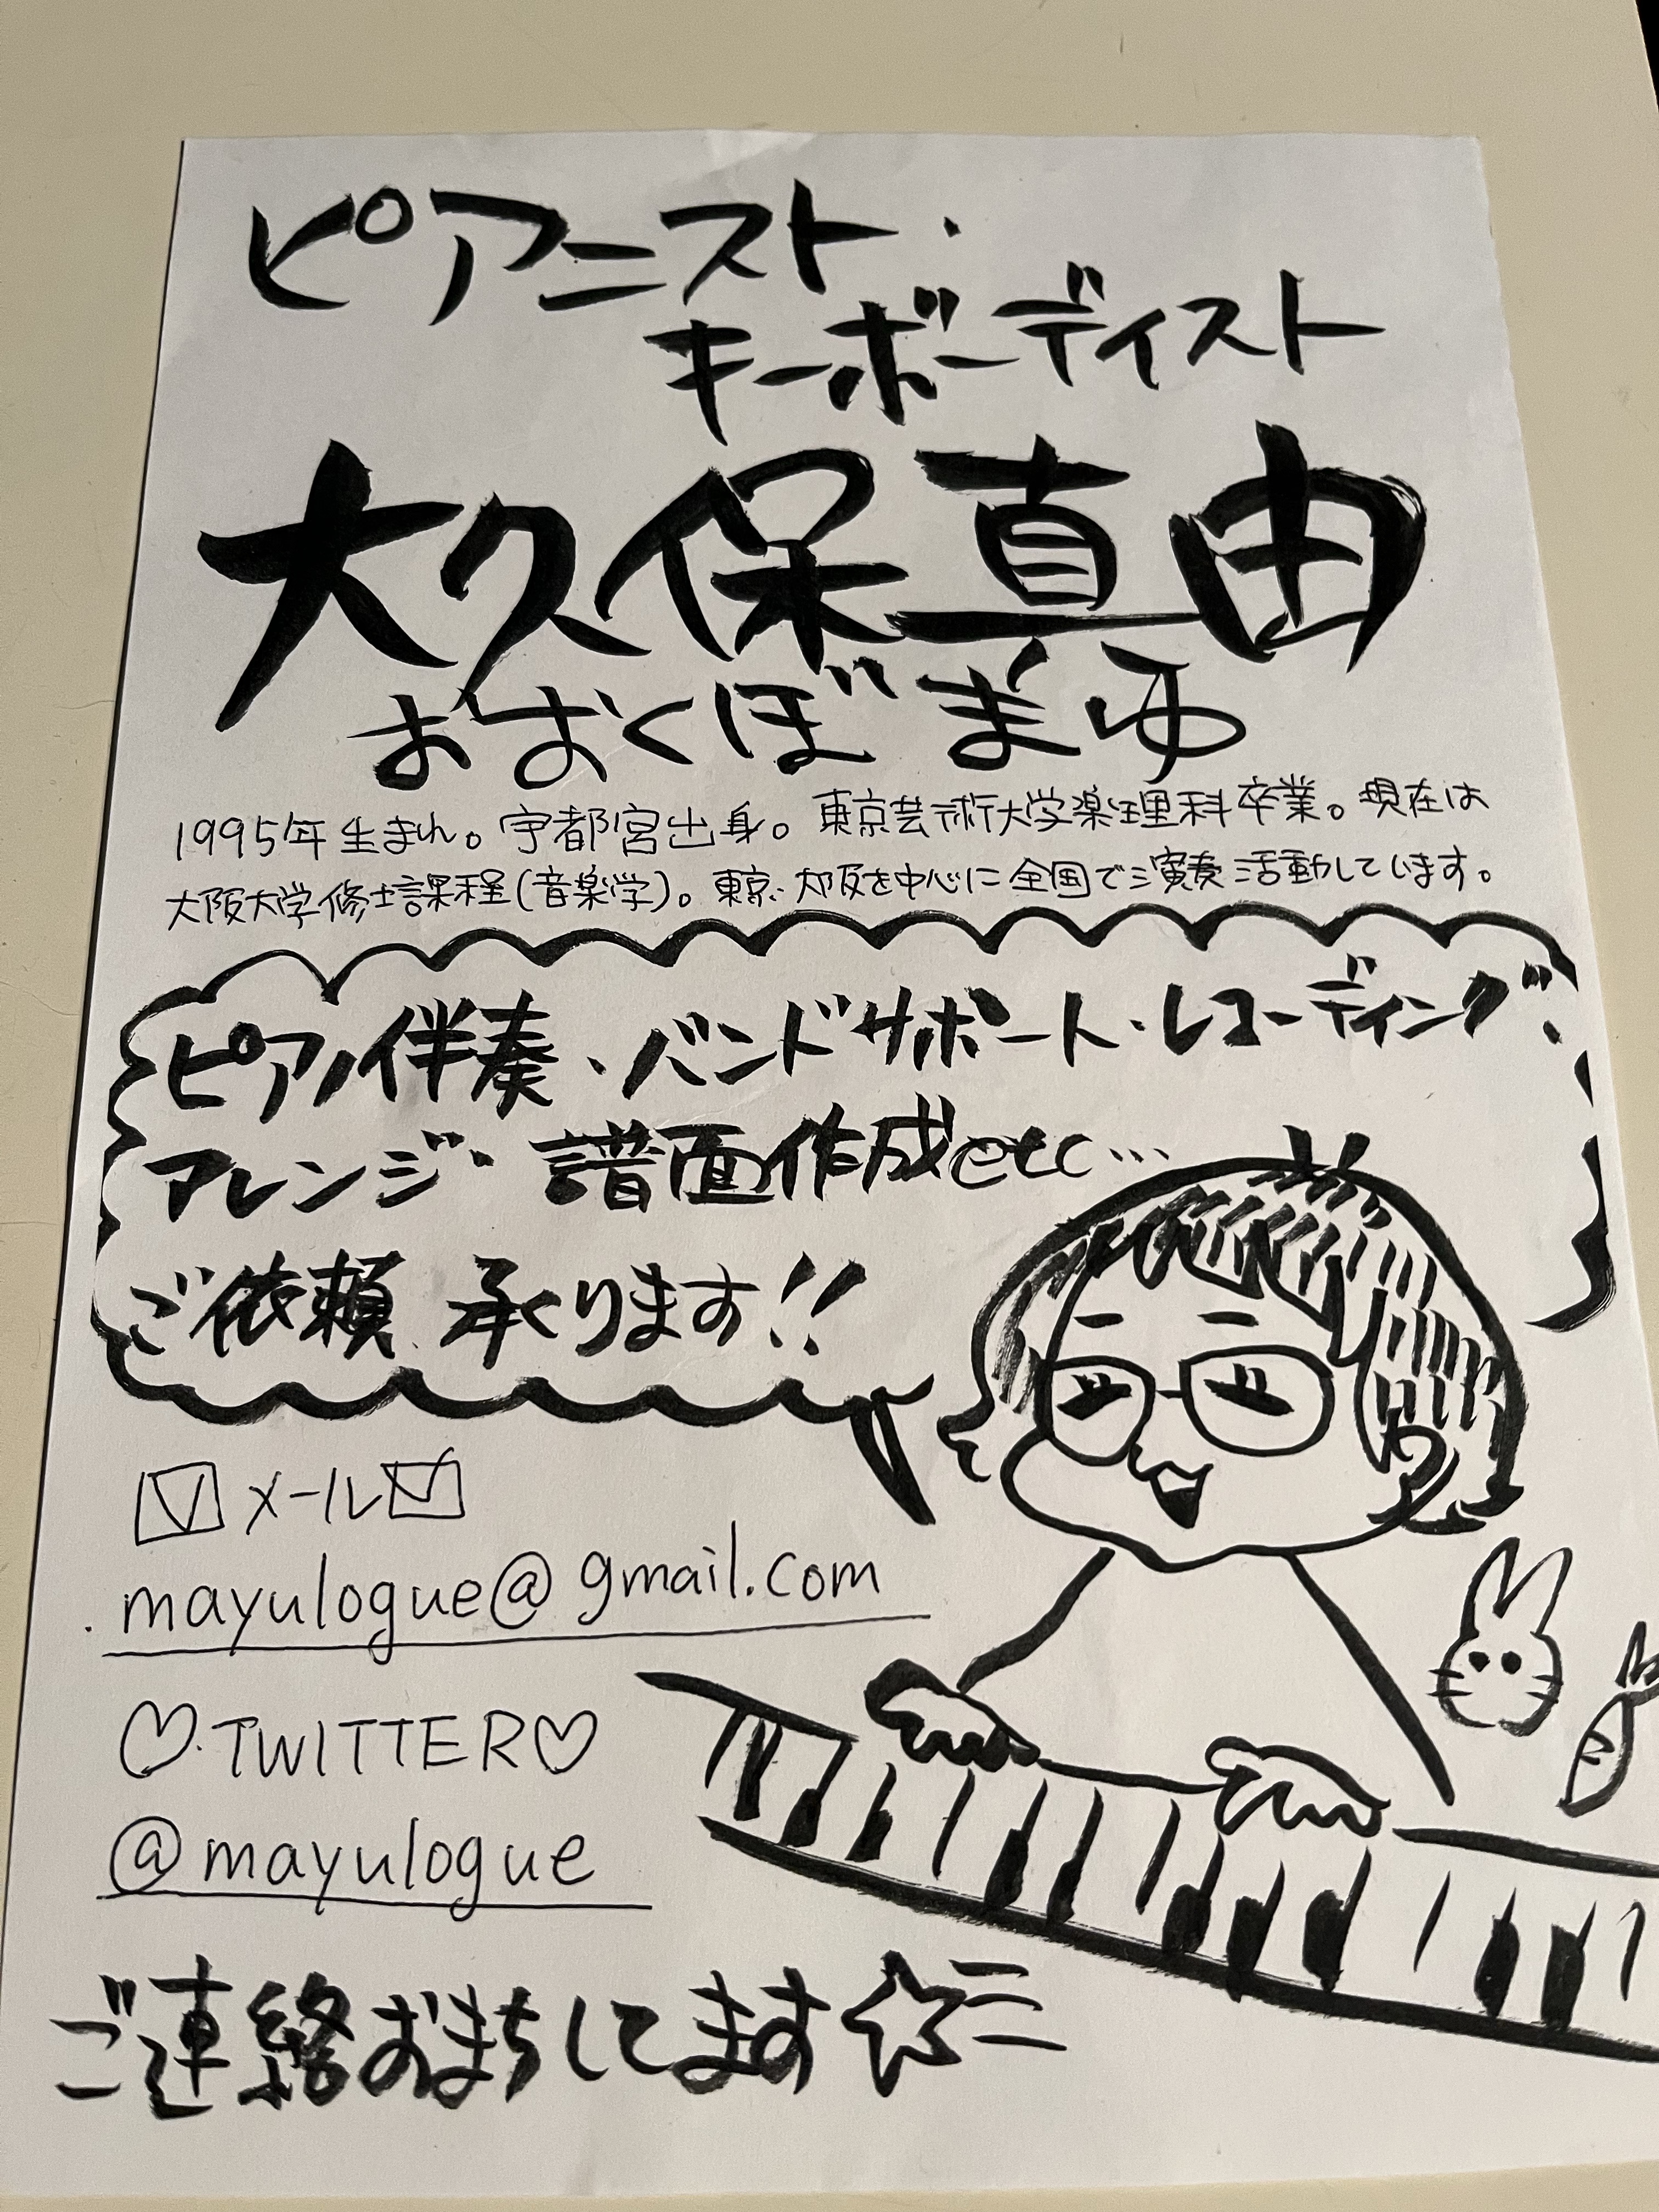 ピアニスト・
キーボーディスト
大久保真由
おおくぼ まゆ
1995年生まれ。宇都宮出身。東京芸術大学楽理科卒業。現在は
大阪大学修士課程(音楽学)。東京、大阪を中心に全国で演奏活動しています。
ピアノ伴奏・バンドサポート・レコーディング・
アレンジ・譜面作成etc…
ご依頼 承ります!!
メール
mayulogue@gmail.com
♡TWITTER♡
@mayulogue
ご連絡おまちしてます☆